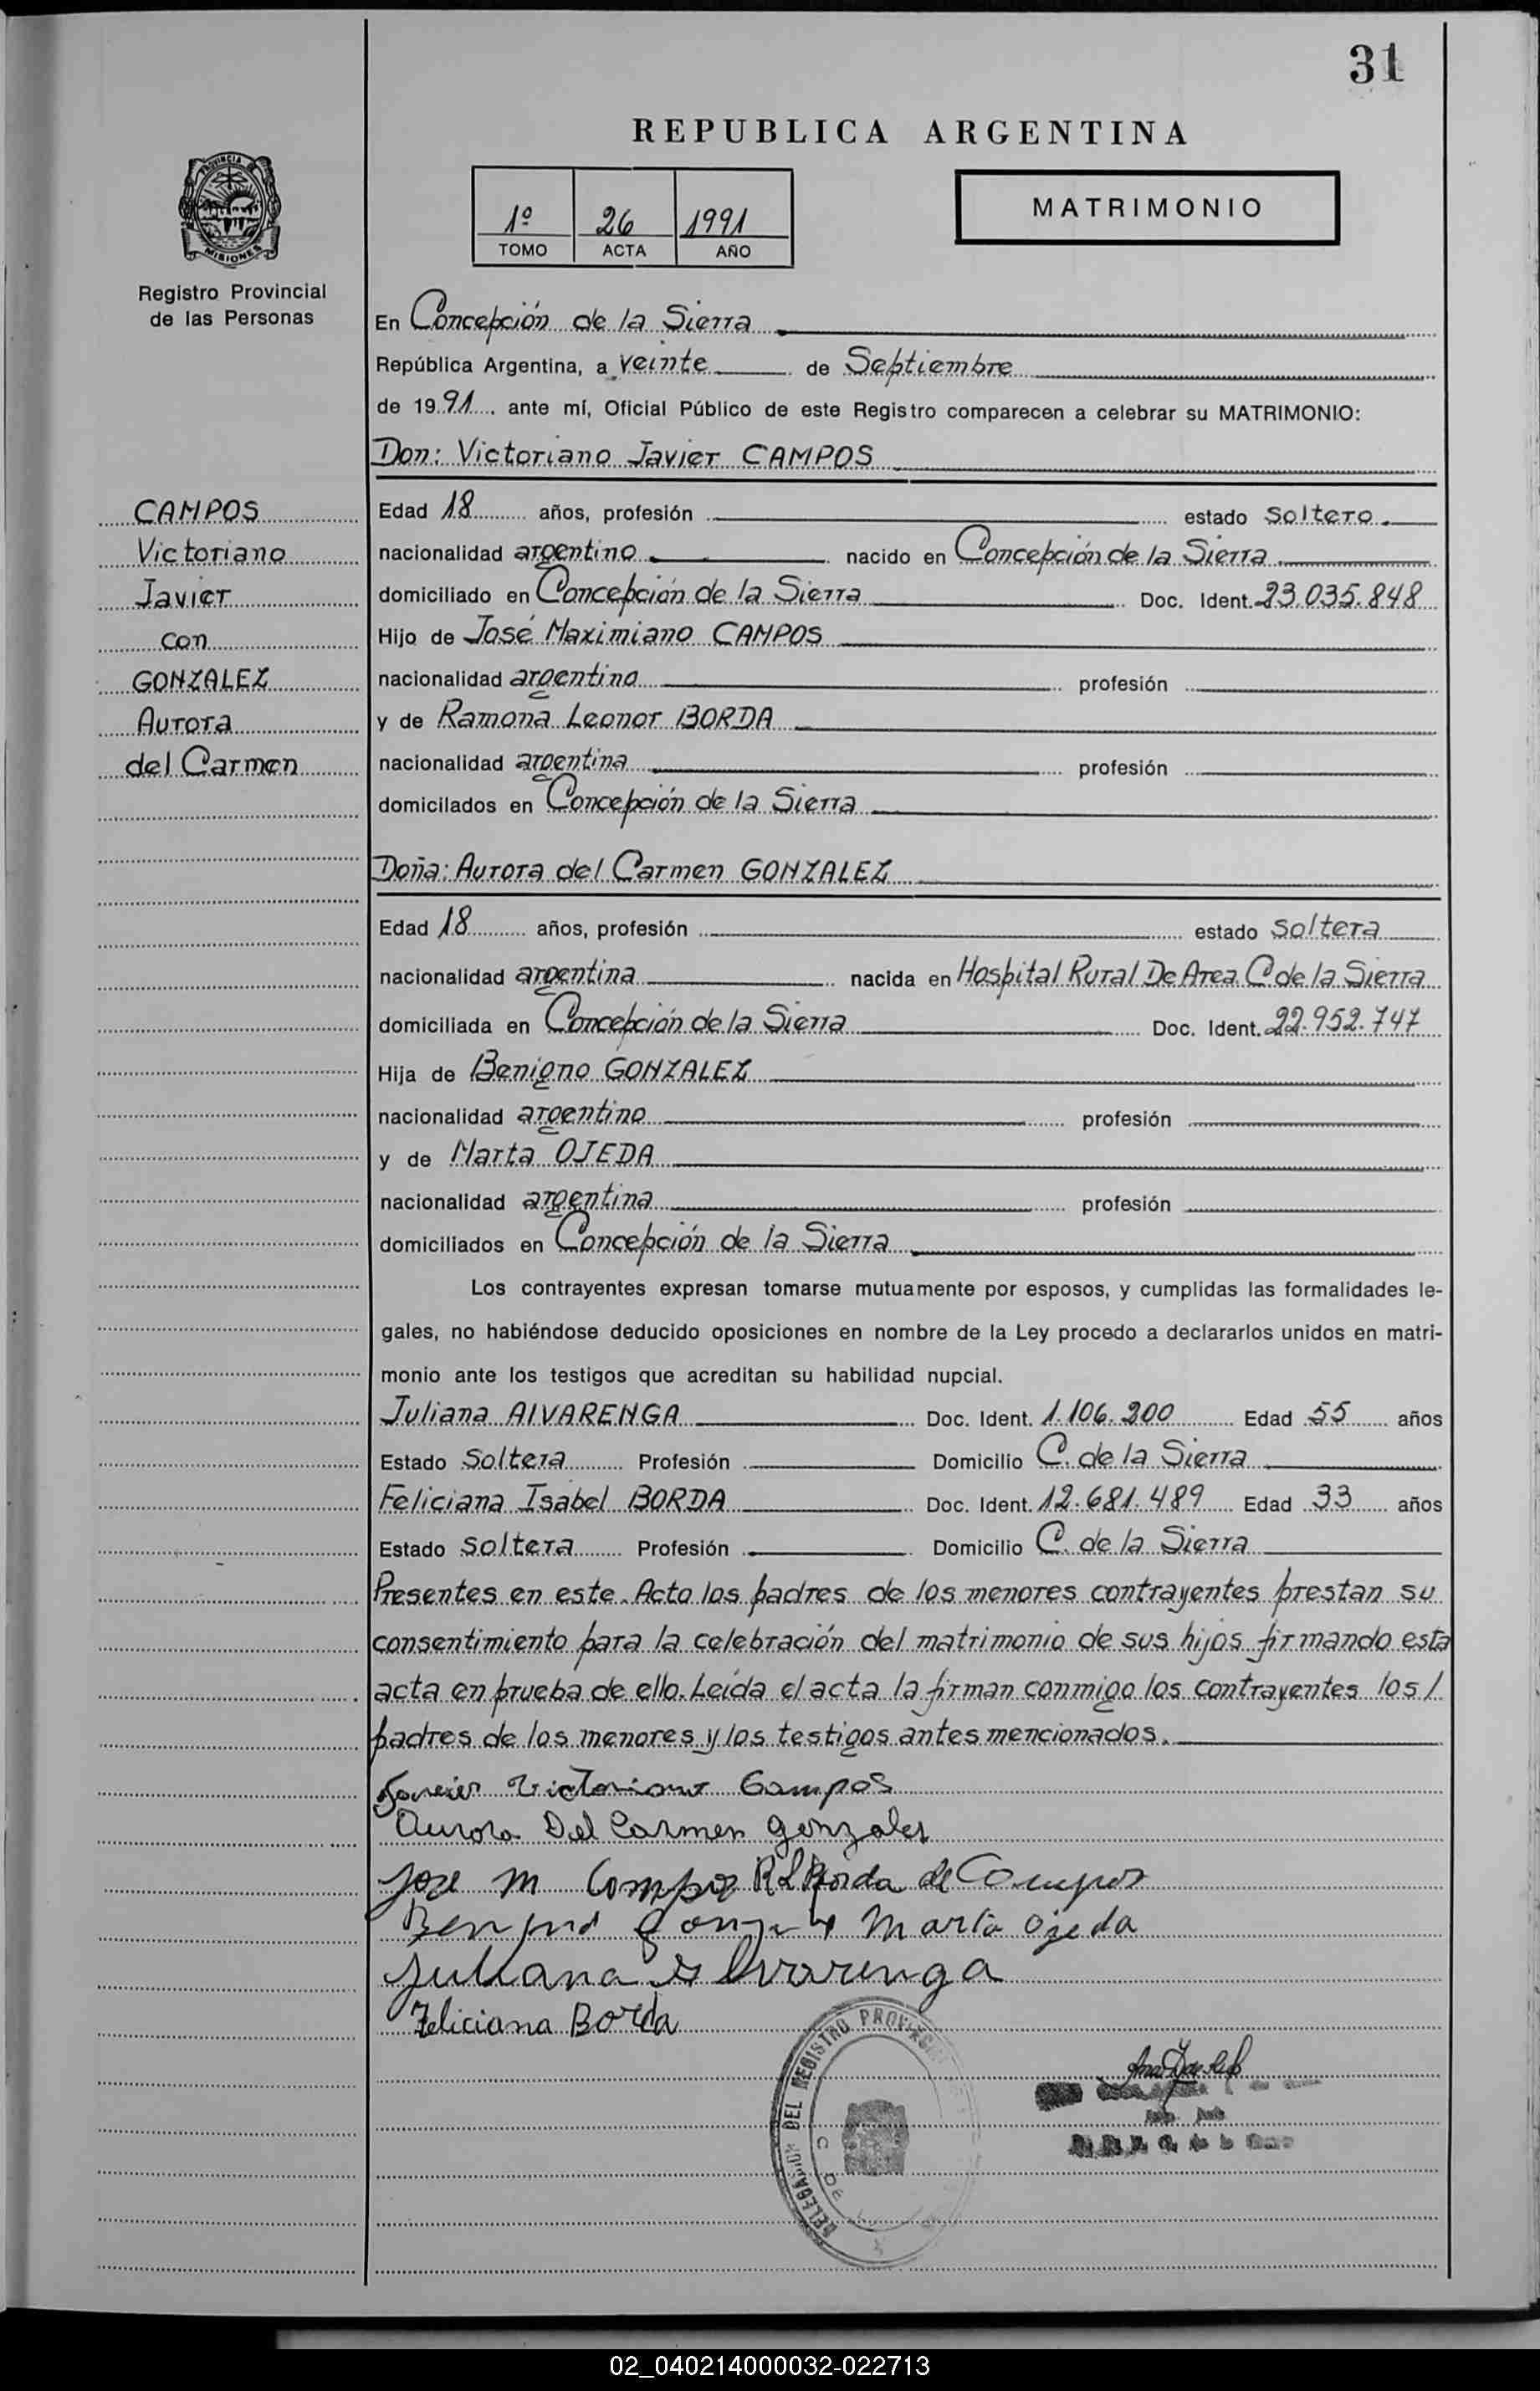 31
REPUBLICA ARGENTINA
PROVINCIA DE
MISIONES
Registro Provincial
de las Personas
1º 26 1991
TOMO ACTA AÑO
MATRIMONIO
En Concepción de la Sierra
República Argentina, a veinte de Septiembre
de 1991. ante mí, Oficial Público de este Registro comparecen a celebrar su MATRIMONIO:
Don: Victoriano Javier CAMPOS
CAMPOS
Victoriano
Javier
con
GONZALEZ
Aurora
del Carmen
Edad 18 años, profesión estado soltero.
nacionalidad argentino nacido en Concepción de la Sierra
domiciliado en Concepción de la Sierra Doc. Ident. 23.035.848
Hijo de José Maximiano CAMPOS
nacionalidad argentino profesión
y de Ramona Leonor BORDA
nacionalidad argentina profesión
domicilados en Concepción de la Sierra
Doña: Aurora del Carmen GONZALEZ
Edad 18 años, profesión estado soltera
nacionalidad argentina nacida en Hospital Rural De Area C. de la Sierra
domiciliada en Concepción de la Sierra Doc. Ident. 22.952.747
Hija de Benigno GONZALEZ
nacionalidad argentino profesión
y de Marta OJEDA
nacionalidad argentina profesión
domiciliados en Concepción de la Sierra
Los contrayentes expresan tomarse mutuamente por esposos, y cumplidas las formalidades le-
gales, no habiéndose deducido oposiciones en nombre de la Ley procedo a declararlos unidos en matri-
monio ante los testigos que acreditan su habilidad nupcial.
Juliana AlVARENGA Doc. Ident. 1.106.200 Edad 55 años
Estado Soltera Profesión Domicilio C. de la Sierra
Feliciana Isabel BORDA Doc. Ident. 12.681.489 Edad 33 años
Estado soltera Profesión Domicilio C. de la Sierra
Presentes en este Acto los padres de los menores contrayentes prestan su
consentimiento para la celebración del matrimonio de sus hijos firmando esta
acta en prueba de ello. Leída el acta la firman conmigo los contrayentes los/
padres de los menores y los testigos antes mencionados.
Javier Victoriano Campos
Aurora Del Carmen Gonzales
Jose M Campos R L Borda de Campos
Marta Ojeda
Juliana Alvarenga
Feliciana Borda
DEL REGISTRO PROVINCIAL
C. DE
02_040214000032-022713